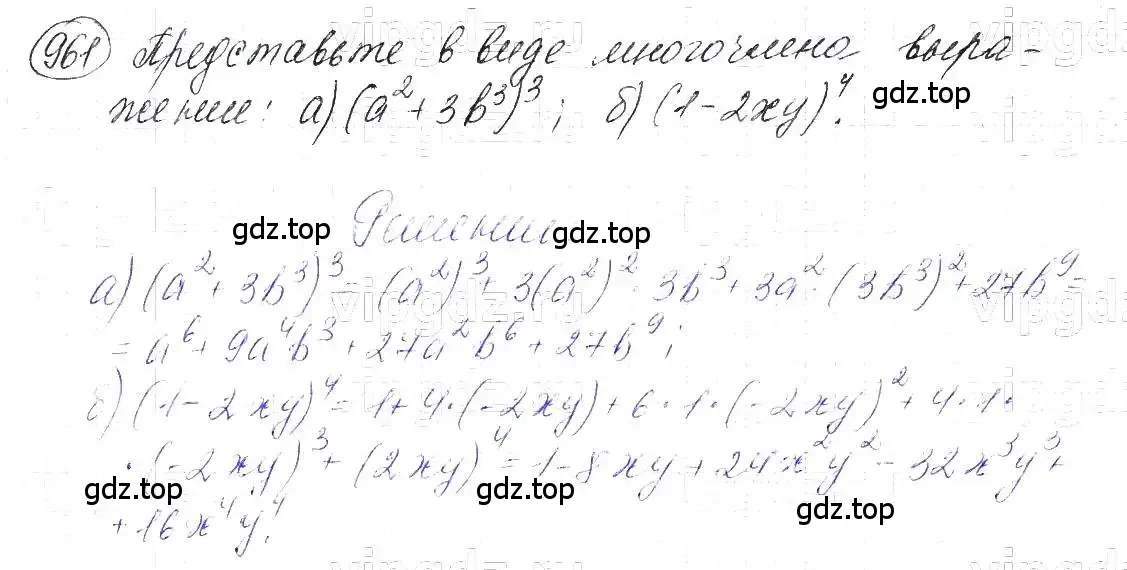 961 Представьте в виде многочлена выра-
жение: а) (a² + 3b³)³; б) (1 - 2xy)⁴.
gdz.top
Решение
gdz.top gdz.top
а) (a² + 3b³)³ = (a²)³ + 3(a²)² · 3b³ + 3a² · (3b³)² + 27b⁹ =
= a⁶ + 9a⁴b³ + 27a²b⁶ + 27b⁹;
б) (1 - 2xy)⁴ = 1 + 4·(-2xy) + 6·1·(-2xy)² + 4·1·
· (-2xy)³ + (2xy)⁴ = 1 - 8xy + 24x²y² - 32x³y³ +
gdz.top gdz.top gdz.top
+ 16x⁴y⁴.